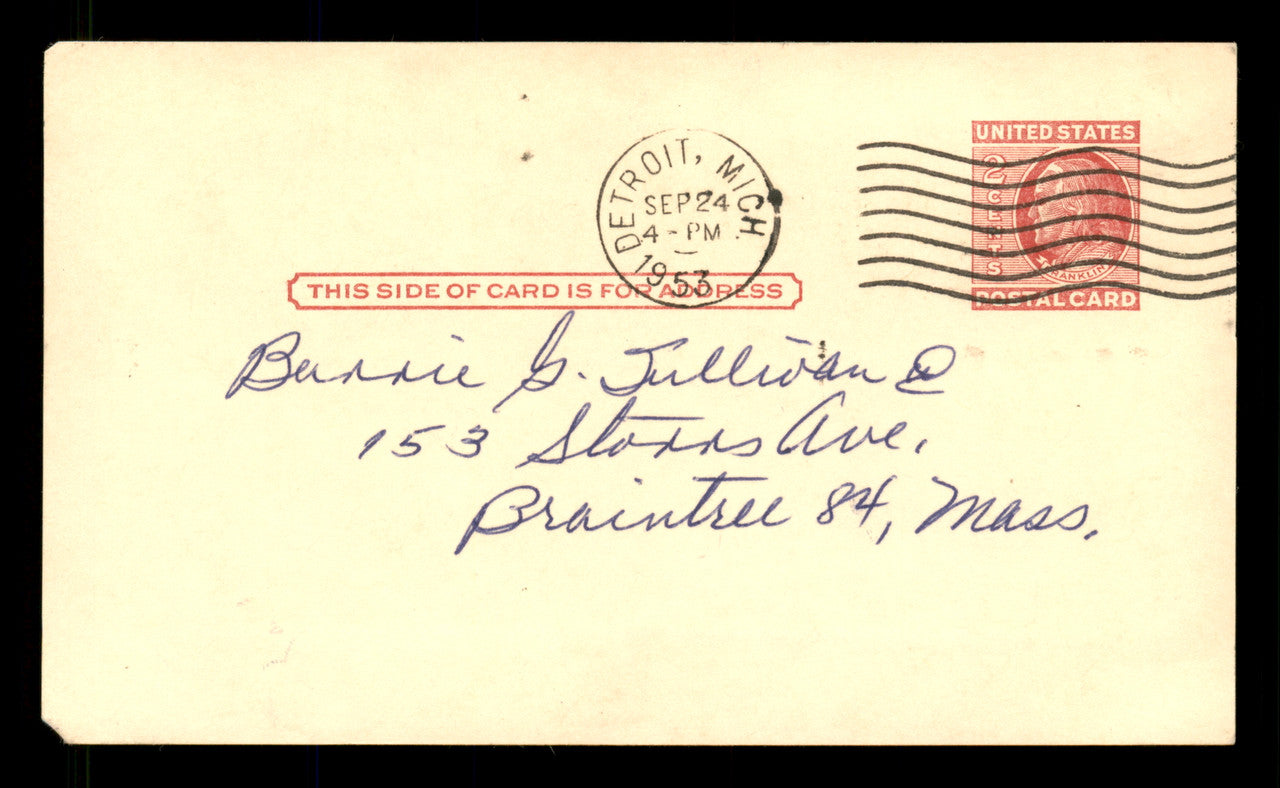 UNITED STATES
2 CENTS
FRANKLIN
POSTAL CARD
DETROIT, MICH
SEP 24
4 - PM
1953
THIS SIDE OF CARD IS FOR ADDRESS
Barrie G. Sullivan
153 Storrs Ave.
Braintree 84, Mass.